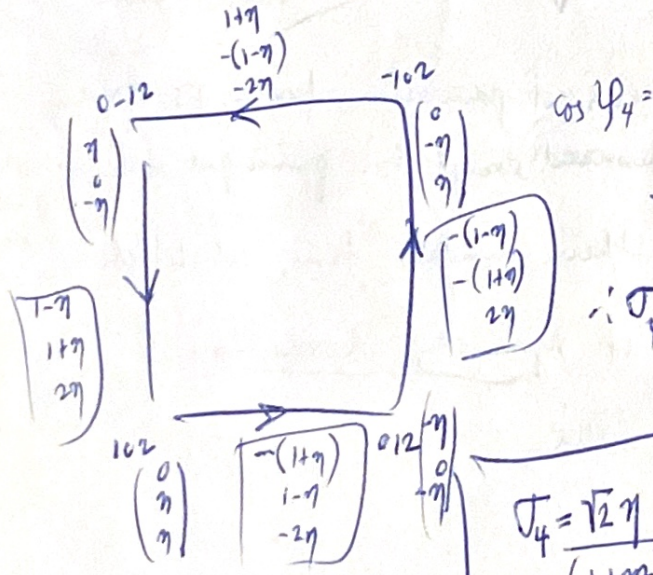 1+η
-(1-η)
-2η
0-12
-102
cos φ₄ =
η
0
-η
0
-η
η
-(1-η)
-(1+η)
2η
1-η
1+η
2η
∴ σ
102
0
η
η
-(1+η)
1-η
-2η
012
-η
0
-η
σ₄ = √2 η